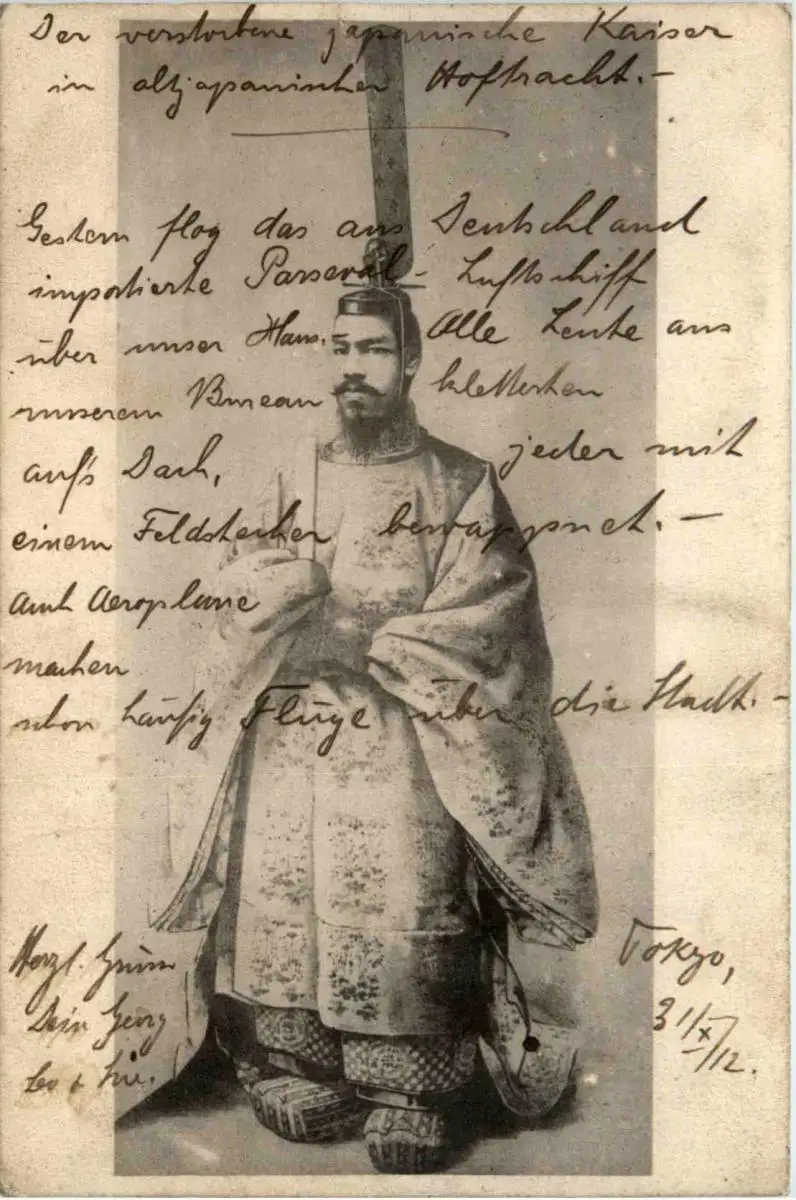 Der verstorbene japanische Kaiser
in altjapanischer Hoftracht.-
Gestern flog das aus Deutschland
importierte Parseval-Luftschiff
über unser Haus.- Alle Leute aus
unserem Bureau kletterten
auf's Dach, jeder mit
einem Feldstecher bewappnet.-
Auch Aeroplane
machen
schon häufig Flüge über die Stadt.-
Herzl. Grüsse
Dein Georg
Tokyo,
31/X/12.